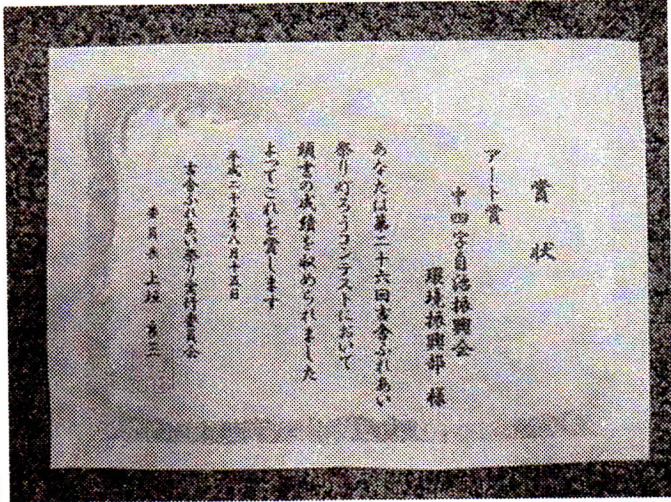 賞状
アート賞
中四字自治振興会
環境振興部 様
あなたは第二十六回吉舎ふれあい
祭り灯ろうコンテストにおいて
頭書の成績を収められました
よってこれを賞します
平成二十五年八月十五日
吉舎ふれあい祭り実行委員会
委員長 上垣